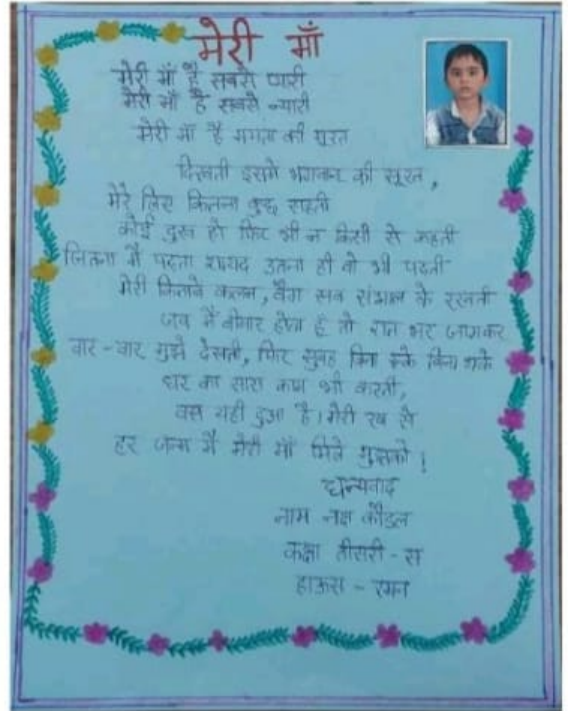 मेरी माँ
मेरी माँ है सबसे प्यारी
मेरी माँ है सबसे न्यारी
मेरी माँ है ममता की मूरत
दिखती इसमे भगवान की सूरत,
मेरे लिए कितना कुछ सहती
कोई दुख हो फिर भी न किसी से कहती
जितना मैं पढ़ता शायद उतना ही वो भी पढ़ती
मेरी किताबे कलम, बैग सब संभाल के रखती
जब मैं बीमार होता हूँ तो रात भर जागकर
बार-बार मुझे देखती, फिर सुबह बिना रुके बिना थके
घर का सारा काम भी करती,
बस यही दुआ है। मेरी रब से
हर जन्म मैं मेरी माँ मिले मुझको।
धन्यवाद
नाम नक्ष कौंडल
कक्षा तीसरी - स
हाऊस - रमन